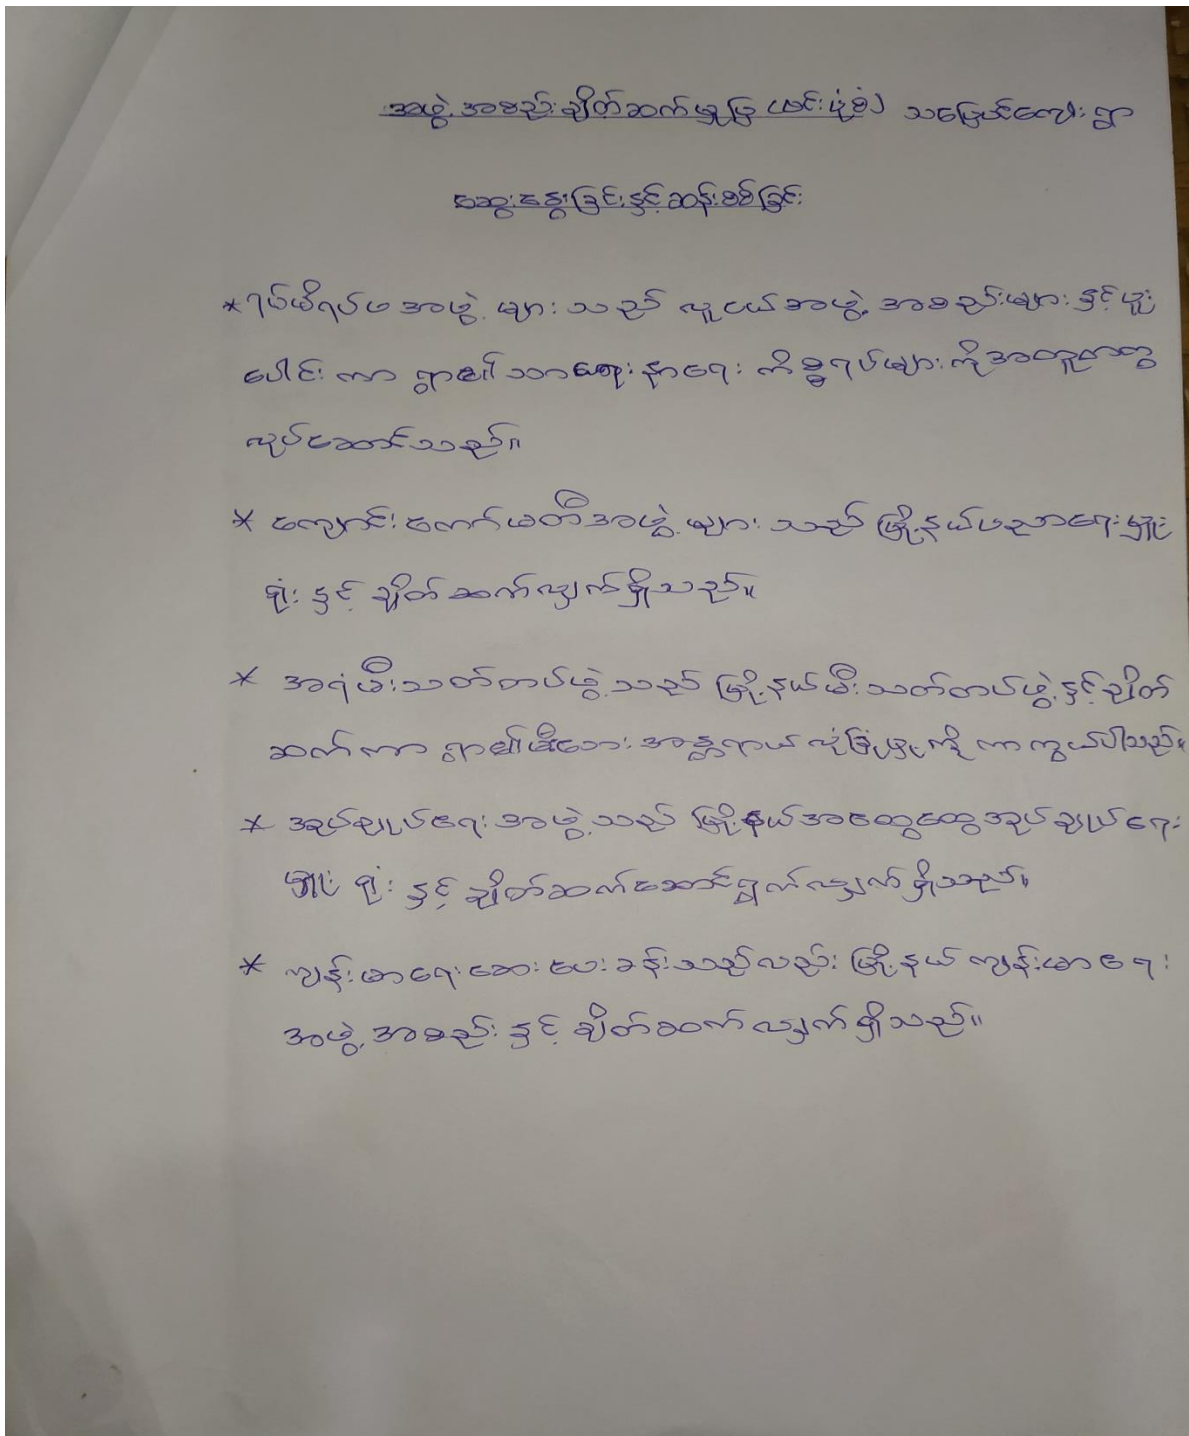 အဖွဲ့အစည်းချိတ်ဆက်မှုပြ (ဗင်းပုံစံ) သပြေပင်ကျေးရွာ
ဆွေးနွေးခြင်းနှင့်ဆန်းစစ်ခြင်း
* ရပ်မိရပ်ဖအဖွဲ့များသည် လူငယ်အဖွဲ့အစည်းများနှင့်ပူး
ပေါင်းကာ ရွာ၏သာရေးနာရေး ကိစ္စရပ်များကိုအတူတကွ
လုပ်ဆောင်သည်။
* ကျောင်းကော်မတီအဖွဲ့များသည် မြို့နယ်ပညာရေးမှူး
ရုံးနှင့် ချိတ်ဆက်လျှက်ရှိသည်။
* အရံမီးသတ်တပ်ဖွဲ့သည် မြို့နယ်မီးသတ်တပ်ဖွဲ့နှင့်ချိတ်
ဆက်ကာ ရွာ၏မီးဘေးအန္တရာယ် လုံခြုံမှုကို ကာကွယ်ပါသည်။
* အုပ်ချုပ်ရေးအဖွဲ့သည် မြို့နယ်အထွေထွေအုပ်ချုပ်ရေး
မှူးရုံးနှင့် ချိတ်ဆက်ဆောင်ရွက်လျှက်ရှိသည်။
* ကျန်းမာရေးဆေးပေးခန်းသည်လည်း မြို့နယ်ကျန်းမာရေး
အဖွဲ့အစည်းနှင့် ချိတ်ဆက်လျှက်ရှိသည်။